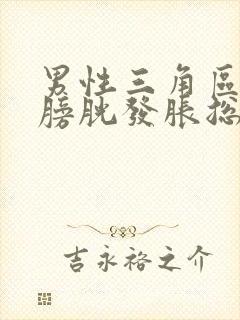 男性三角區
膀胱發脹總
吉永裕之介